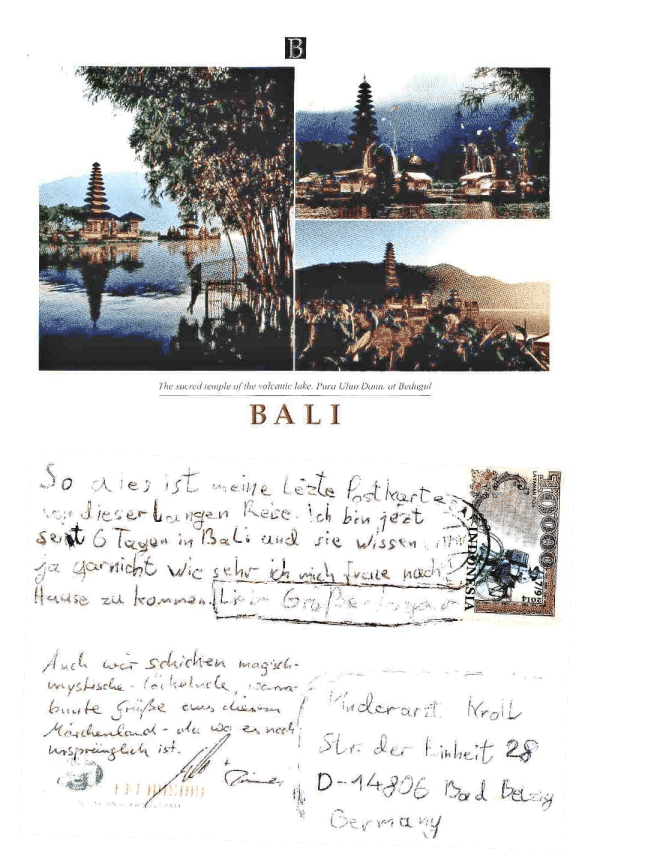 B
The sacred temple of the volcanic lake, Pura Ulun Danu, at Bedugul
BALI
So dies ist meine Lezte Postkarte
von dieser Langen Reise. Ich bin jezt
seit 6 Tagen in Bali und sie wissen
ja garnicht wie sehr ich mich freue nach
Hause zu kommen. Liebe Grüße
10.000
INDONESIA
2014
Auch wir schicken magisch-
mystische-lächelnde,
bunte Grüße aus diesem
Märchenland - da wo es noch
ursprünglich ist.
Kinderarzt Kroll
Str. der Einheit 28
D-14806 Bad Belzig
Germany